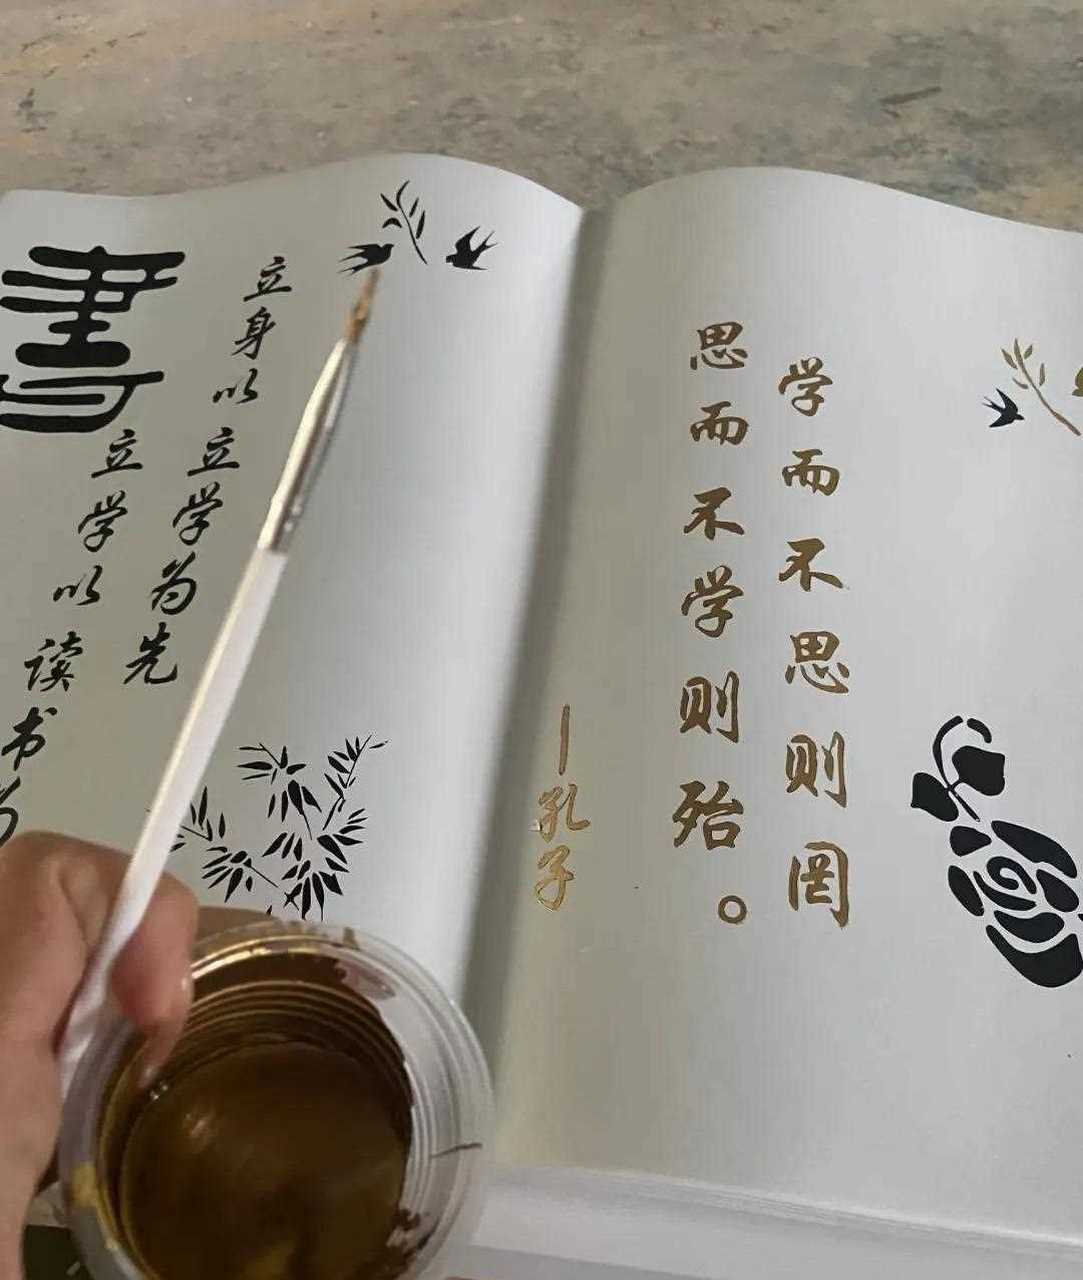 学而不思则罔
思而不学则殆。
—孔子
立身以立学为先
立学以读书为
書